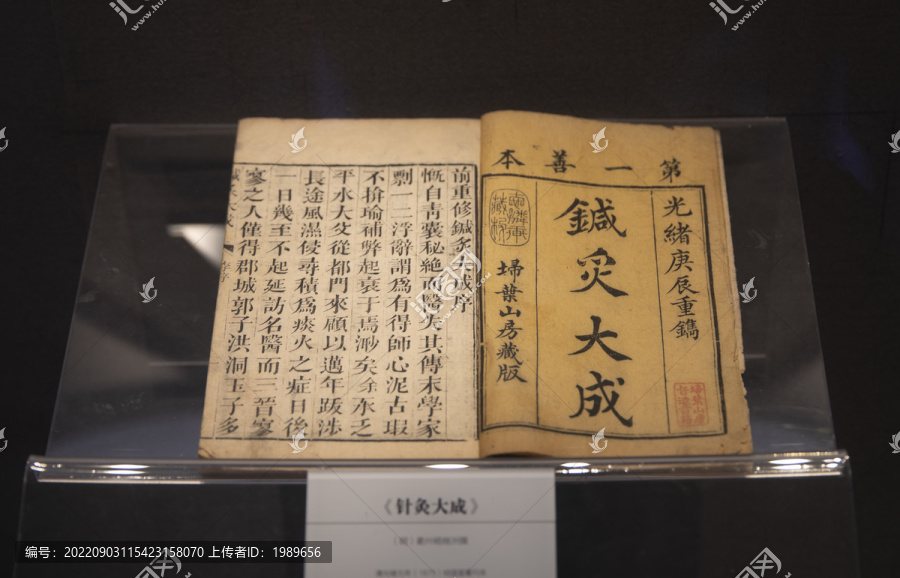 第一善本
光緒庚辰重鐫
鍼灸大成
埽葉山房藏版
前重修鍼灸大成序
慨自青囊秘絶而醫失其傳末學家
剽一二浮辭謂爲有得師心泥古瑕
不揜瑜補弊起衰于焉渺矣余承乏
平水大父從都門來顧以邁年跋涉
長途風濕侵尋積爲痰火之症日後
一日幾至不起延訪名醫而三晉寥
寥之人僅得郡城郭子洪洞王子多
《针灸大成》
编号：20220903115423158070 上传者ID：1989656